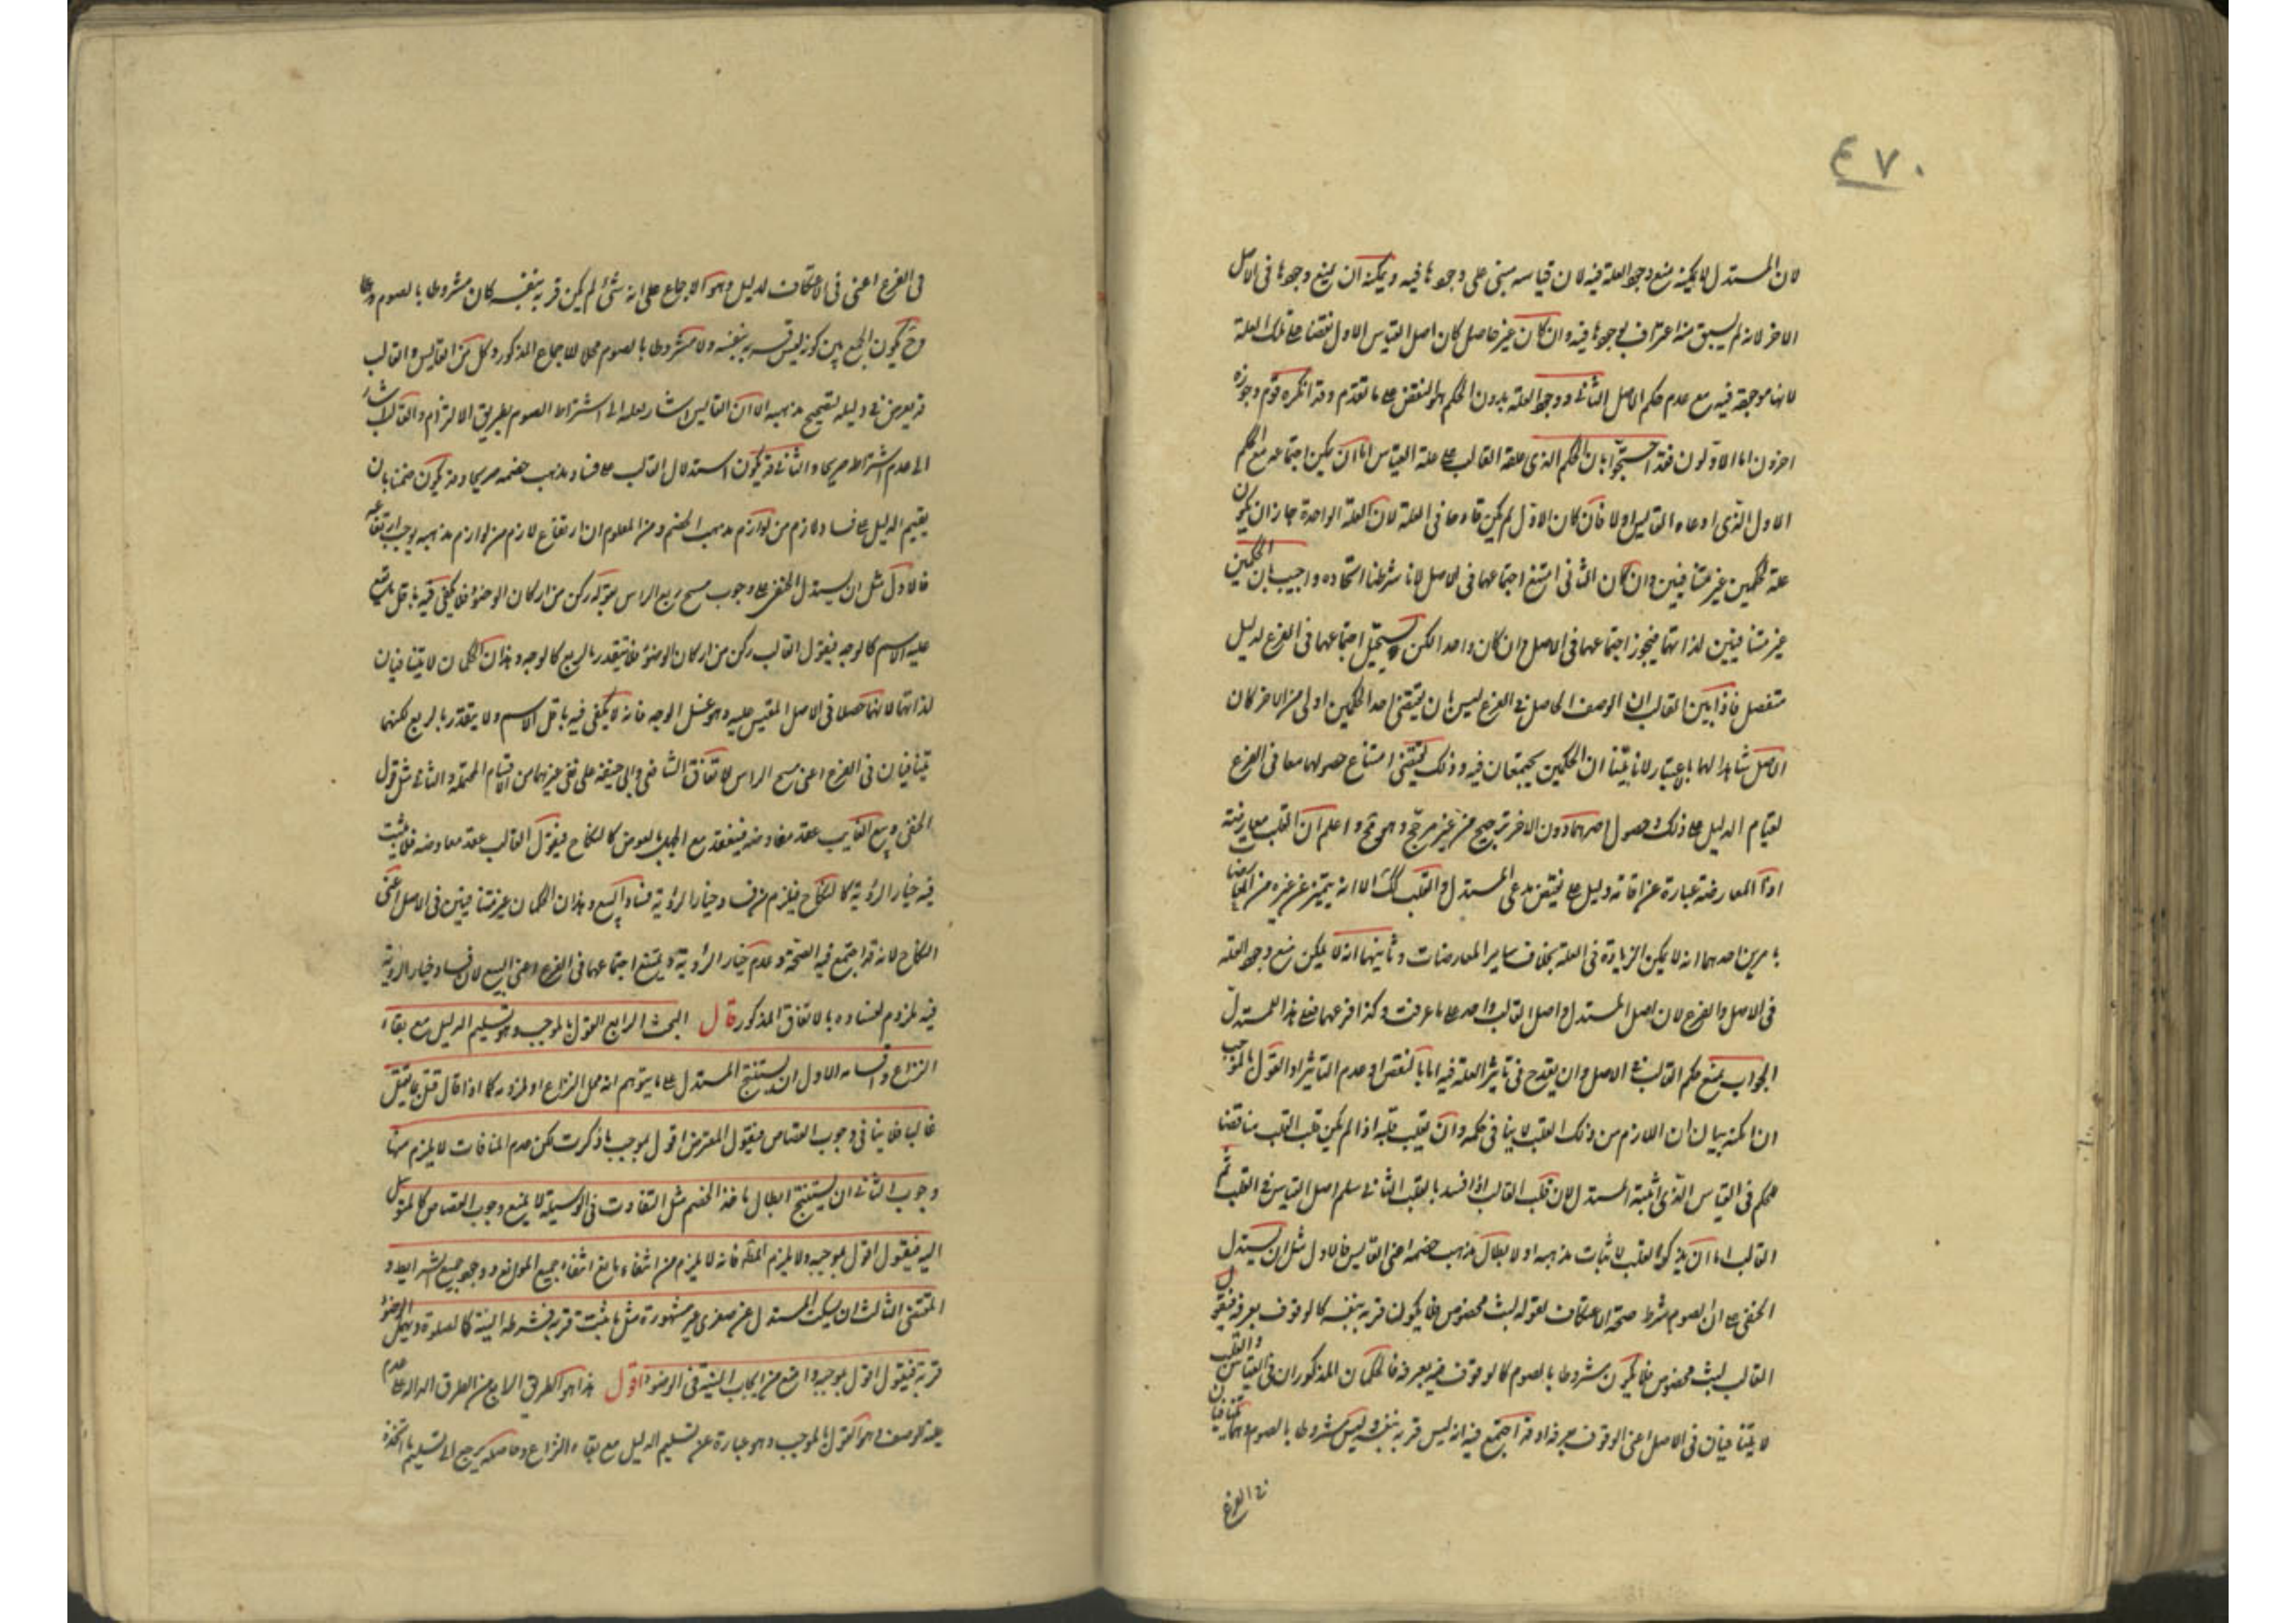 ٤٧٠
لان المستدل لا يمكنه منع وجود العلة فيه لان قياسه مبنى على وجودها فيه ويمكنه ان يمنع وجودها فى الاصل
الاخر لانه لم يسبق منه اعتراف بوجودها فيه وان كان غير حاصل كان اصل القياس الاول نقضا على تلك العلة
لانها موجودة فيه مع عدم حكم الاصل الثانى ووجود العلة بدون الحكم هو النقض على ما تقدم وقد انكره قوم وجوزه
اخرون اما الاولون فقد احتجوا بان الحكم الذى علقه القالب على علة القياس اما ان يمكن اجتماعه مع الحكم
الاول الذى ادعاه القايس او لا فان كان الاول لم يكن قادحا فى العلة لان العلة الواحدة جاز ان يكون
علة لحكمين غير متنافيين وان كان الثانى امتنع اجتماعهما فى الاصل لانا شرطنا اتحاده واجيب بان الحكمين
غير متنافيين لذاتهما فيجوز اجتماعهما فى الاصل وان كان واحدا لكن يستحيل اجتماعهما فى الفرع لدليل
منفصل فاذا بين القالب ان الوصف الحاصل فى الفرع ليس بان يقتضى احد الحكمين اولى من الاخر كان
الاصل شاهدا لهما بالاعتبار لانا بينا ان الحكمين يجتمعان فيه وذلك يقتضى امتناع حصولهما معا فى الفرع
لقيام الدليل على ذلك وحصول احدهما دون الاخر ترجيح من غير مرجح وهو مح واعلم ان القلب معارضة
اذ المعارضة عبارة عن اقامة دليل على نقيض مدعى المستدل والقلب كك الا انه يتميز عن غيره من المعارضات
بامرين احدهما انه لا يمكن الزيادة فى العلة بخلاف ساير المعارضات وثانيهما انه لا يمكن منع وجود العلة
فى الاصل والفرع لان اصل المستدل واصل القالب واحد على ما عرفت وكذا فرعهما فعلى هذا للمستدل
الجواب بمنع حكم القالب فى الاصل وان يقدح فى تاثير العلة فيه اما بالنقض او عدم التاثير او القول بالموجب
ان امكنه بيان ان اللازم من ذلك القلب لا ينافى حكمه وان يقلب قلبه اذا لم يكن قلب القلب مناقضا
لحكم فى القياس الذى اثبته المستدل لان قلب القالب اذا فسد بالقلب الثانى سلم اصل القياس من القلب ثم
القالب اما ان يذكر القلب لاثبات مذهبه او لابطال مذهب خصمه اعنى القايس فالاول مثل ان يستدل
الحنفى على ان الصوم شرط صحة الاعتكاف بقوله لبث مخصوص فلا يكون قربة بنفسه كالوقوف بعرفة فيقول
القالب لبث مخصوص فلا يكون مشروطا بالصوم كالوقوف بعرفة فالحكمان المذكوران فى القياس والقلب
لا يتنافيان فى الاصل اعنى الوقوف بعرفة اذ قد اجتمع فيه انه ليس قربة بنفسه وليس مشروطا بالصوم وهما متنافيان
فى الفرع
فى الفرع اعنى فى الاعتكاف لدليل وهو الاجماع على انه شئ لم يكن قربة بنفسه كان مشروطا بالصوم
وح يكون الجمع بين كونه ليس قربة بنفسه ولا مشروطا بالصوم محالا للاجماع المذكور وكل من القايس والقالب
قد تعرض فى دليله لتصحيح مذهبه الا ان القايس اشار بعلته الى اشتراط الصوم بطريق الالتزام والقالب اشار
الى عدم اشتراطه صريحا والثانى قد يكون استدلال القالب على فساد مذهب خصمه صريحا وقد يكون ضمنا بان
يقيم الدليل على فساد لازم من لوازم مذهب الخصم ومن المعلوم ان ارتفاع لازم من لوازم مذهبه يوجب ارتفاعه
فالاول مثل ان يستدل الحنفى على وجوب مسح ربع الراس بقوله ركن من اركان الوضوء فلا يكفى فيه اقل ما يقع
عليه الاسم كالوجه فيقول القالب ركن من اركان الوضوء فلا يتقدر بالربع كالوجه وهذان الحكمان لا يتنافيان
لذاتهما لانهما حصلا فى الاصل المقيس عليه وهو غسل الوجه فانه لا يكفى فيه باقل الاسم ولا يتقدر بالربع لكنهما
يتنافيان فى الفرع اعنى مسح الراس لاتفاق الشافعى وابى حنيفة على نفى غيرهما من الاقسام المحتملة والثانى مثل قول
الحنفى وبيع الغايب عقد معاوضة فينعقد مع الجهل بالعوض كالنكاح فيقول القالب عقد معاوضة فلا يثبت
فيه خيار الرؤية كالنكاح فيلزم من فساد خيار الرؤية فساد البيع وهذان الحكمان غير متنافيين فى الاصل اعنى
النكاح لانه قد اجتمع فيه الصحة وعدم خيار الرؤية ويمتنع اجتماعهما فى الفرع اعنى البيع لان فساد خيار الرؤية
فيه ملزوم لفساده بالاتفاق المذكور قال البحث الرابع القول بالموجب وهو تسليم الدليل مع بقاء
النزاع واقسامه الاول ان يستنتج المستدل على ما يتوهم انه محل النزاع او ملزومه كما اذا قال قتل بما يقتل
غالبا فلا ينافى وجوب القصاص فيقول المعترض اقول بموجب ما ذكرت لكن عدم المنافات لا يلزم منها
وجوب الثانى ان يستنتج ابطال ماخذ الخصم مثل التفاوت فى الوسيلة لا يمنع وجوب القصاص كالمتوسل
اليه فيقول اقول بموجبه ولا يلزم المط فانه لا يلزم من انتفاء مانع انتفاء جميع الموانع ووجود جميع الشرايط و
المقتضى الثالث ان يسكت المستدل عن صغرى غير مشهورة مثل ما ثبت قربة فشرطه النية كالصلوة ويهمل الوضوء
قربة فيقول اقول بموجبه وامنع من ايجاب النية فى الوضوء اقول هذا هو الطريق الرابع من الطرق الدالة على عدم
علية الوصف وهو القول بالموجب وهو عبارة عن تسليم الدليل مع بقاء النزاع وحاصله يرجع الى تسليم ما اتخذه